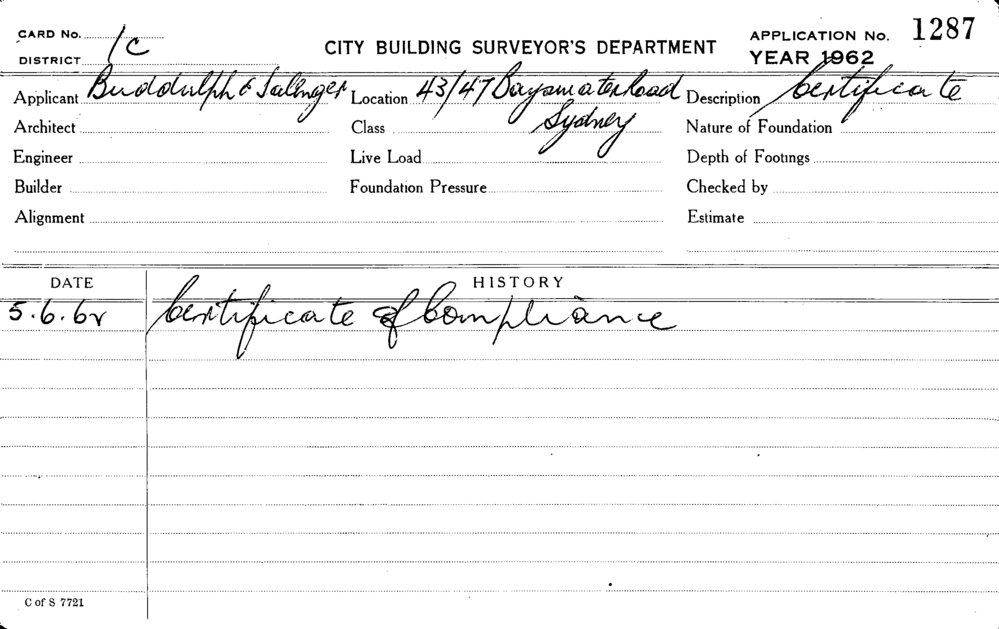 CARD No.
1C
DISTRICT
CITY BUILDING SURVEYOR'S DEPARTMENT
APPLICATION No. 1287
YEAR 1962
Applicant Buddulph & Salenger Location 43/47 Bayswater Road Description Certificate
Architect Class Sydney Nature of Foundation
Engineer Live Load Depth of Footings
Builder Foundation Pressure Checked by
Alignment Estimate
DATE HISTORY
5.6.62 Certificate of Compliance
C of S 7721